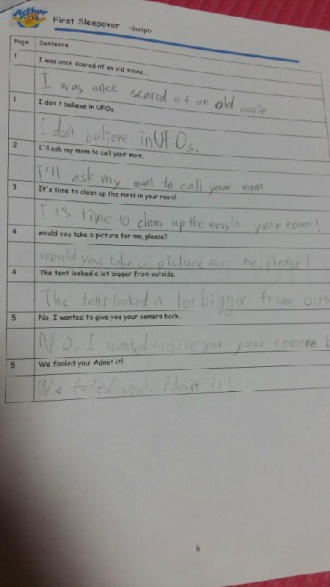 Arthur
First Sleepover -Script-
Page Sentence
1 I was once scared of an old movie.
I was once scared of an old movie
1 I don t believe in UFOs.
I don't believe in UFOs.
2 I'll ask my mom to call your mom.
I'll ask my mom to call your mom
3 It's time to clean up the mess in your room!
It's time to clean up the mess in your room!
4 would you take a picture for me, please?
would you take a picture for me, please?
4 The tent looked a lot bigger from outside.
The tent looked a lot bigger from out
5 No, I wanted to give you your camera back.
No, I wanted to give you your camera
5 We fooled you! Admit it!
We fooled you! Admit it!
6